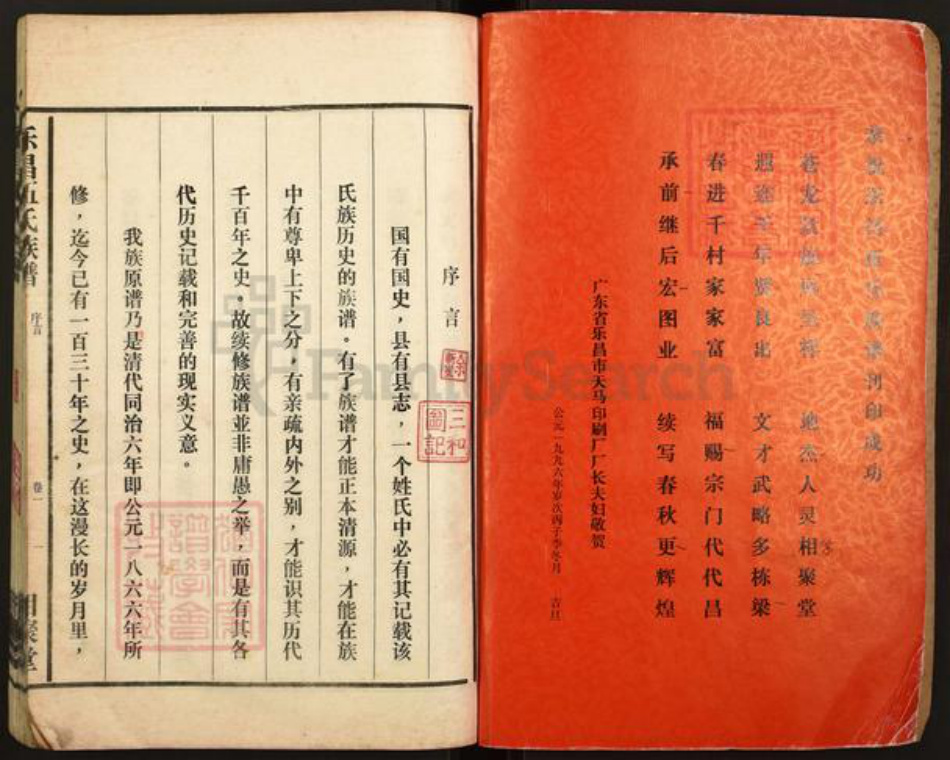 春进千村家家富 福赐宗门代代昌
承前继后宏图业 续写春秋更辉煌
广东省乐昌市天马印刷厂厂长夫妇敬贺
公元一九九六年岁次丙子季冬月 吉旦
序言
国有国史，县有县志，一个姓氏中必有其记载该
氏族历史的族谱。有了族谱才能正本清源，才能在族
中有尊卑上下之分，有亲疏内外之别，才能识其历代
千百年之史。故续修族谱並非庸愚之举，而是有其各
代历史记载和完善的现实义意。
我族原谱乃是清代同治六年即公元一八六六年所
修，迄今已有一百三十年之史，在这漫长的岁月里，
乐昌伍氏族谱 序言 卷一 一 相聚堂
三和圖記
FamilySearch